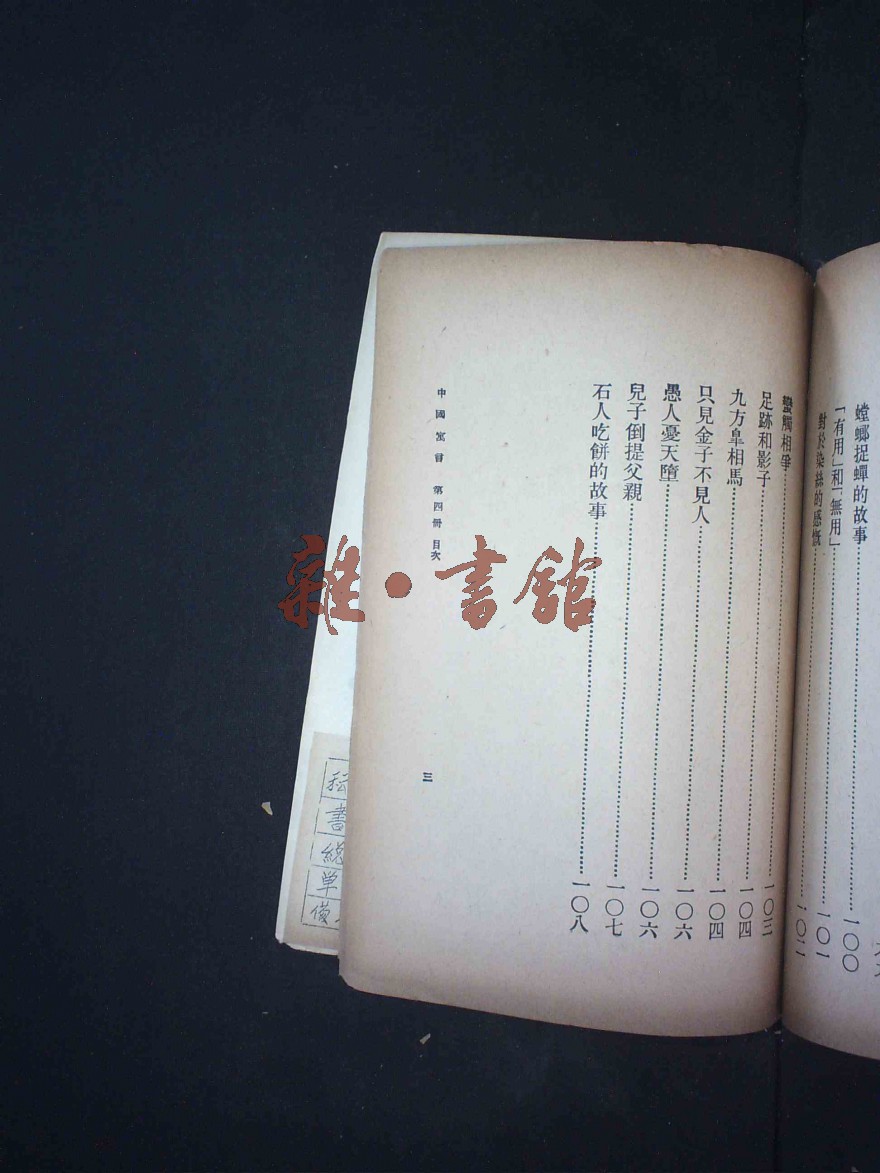 螳螂捉蟬的故事……一〇〇
「有用」和「無用」……一〇一
對於染絲的感慨……一〇二
蠻觸相爭
足跡和影子……一〇三
九方皐相馬……一〇四
只見金子不見人……一〇四
愚人憂天墮……一〇六
兒子倒提父親……一〇六
石人吃餅的故事……一〇七
一〇八
中國寓言 第四冊 目次
三
雜·書館
書
總
單
備